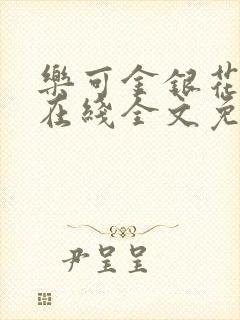 樂可金銀花
在綫全文免
尹呈呈